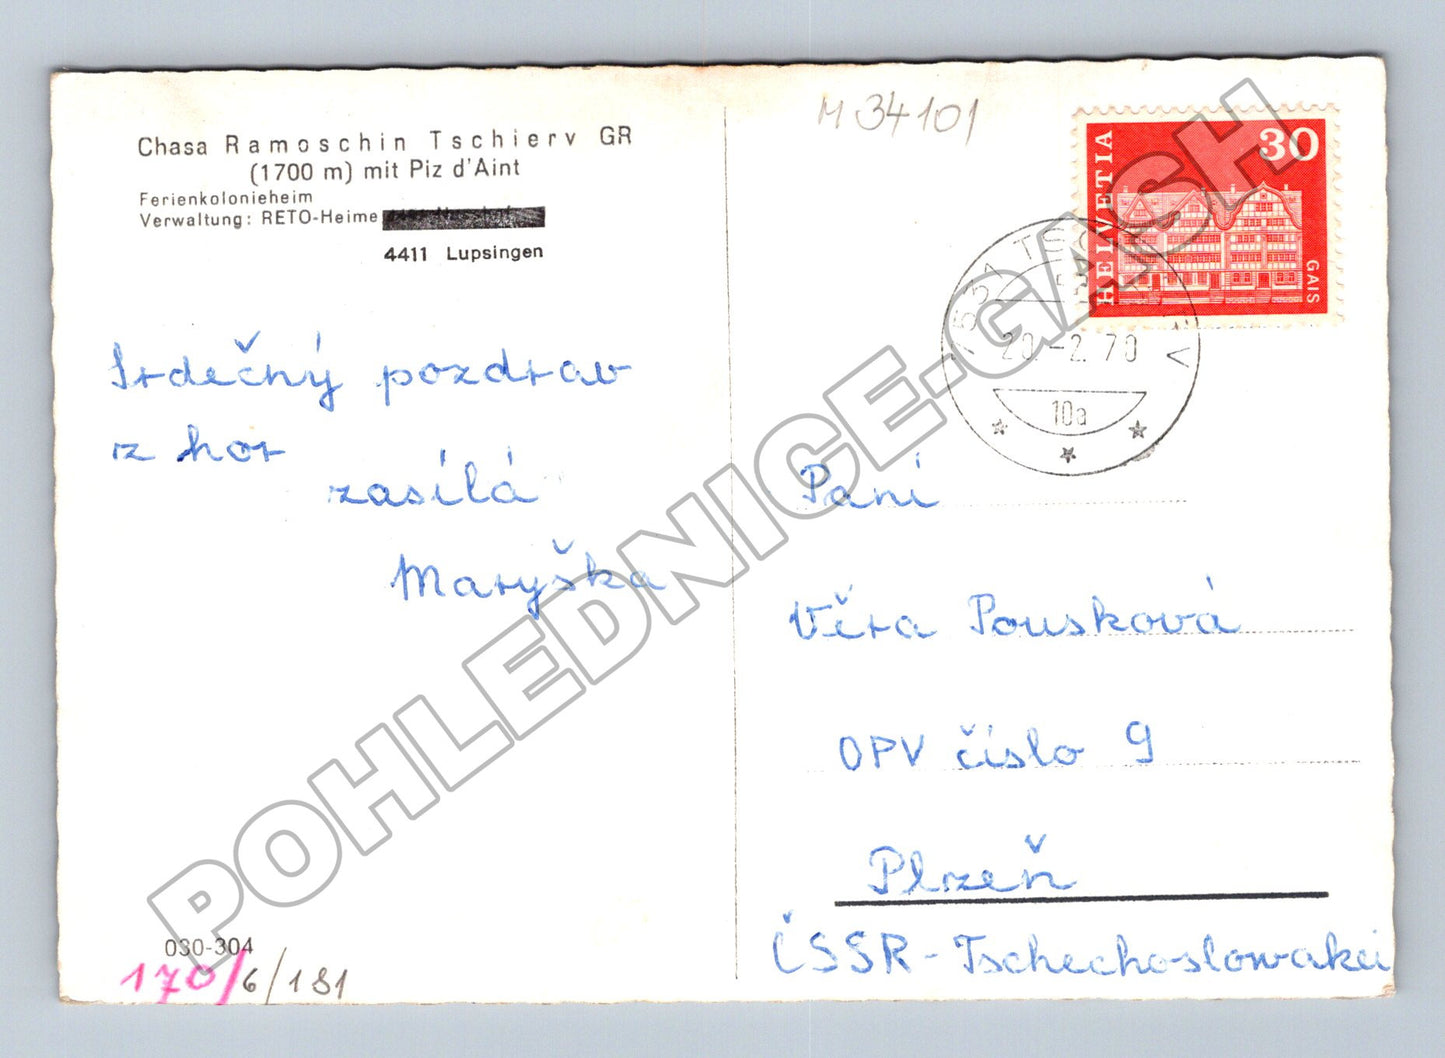 Chasa Ramoschin Tschierv GR
(1700 m) mit Piz d'Aint
Ferienkolonieheim
Verwaltung: RETO-Heime
4411 Lupsingen
Srdečný pozdrav
z hor
zasílá
Maryška
030-304
170/6/181
M 34101
HELVETIA
30
GAIS
7531 TSCHIERV
20.-2.70
10a
Paní
Věra Pousková
OPV číslo 9
Plzeň
ČSSR - Tschechoslowakei
POHLEDNICE-GASH